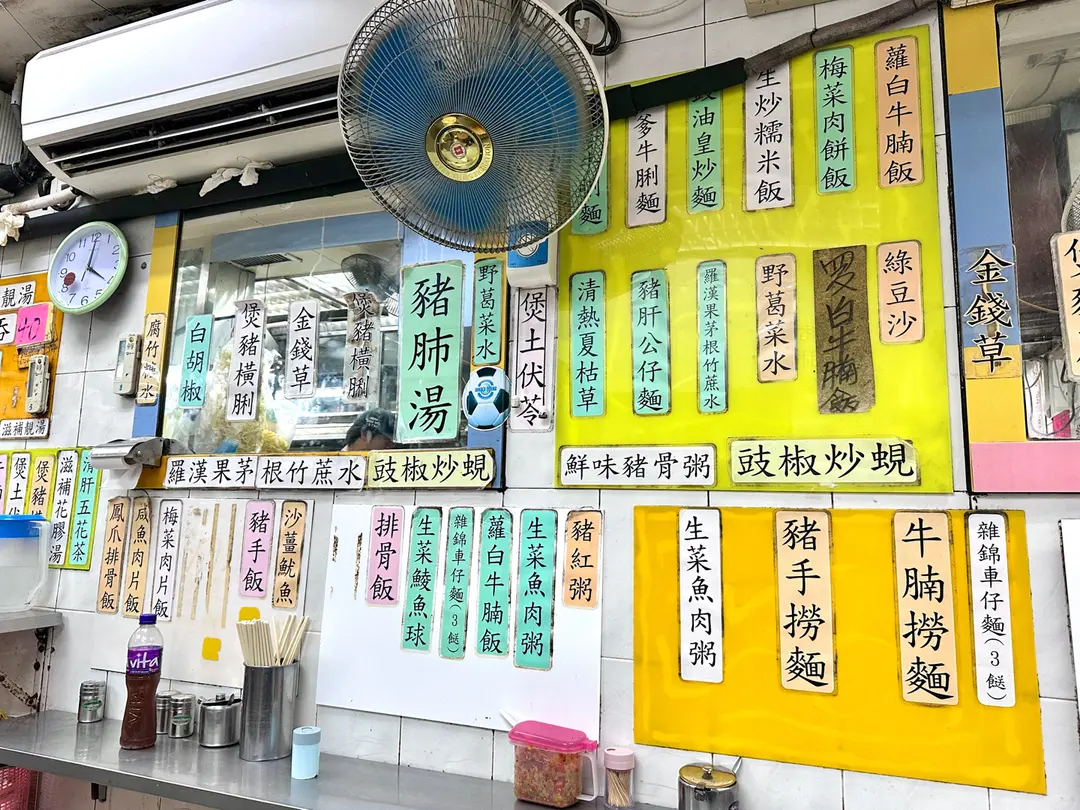 靚湯
吞
40
滋補靚湯
煲土伏
煲豬
滋補花膠湯
清肝五花茶
12
11
10
9
8
7
6
5
4
3
2
1
腐竹
水
白胡椒
煲豬橫脷
金錢草
煲豬橫脷
豬肺湯
野葛菜水
煲土伏苓
羅漢果茅根竹蔗水
豉椒炒蜆
麵
爹牛脷麵
油皇炒麵
生炒糯米飯
梅菜肉餅飯
蘿白牛腩飯
清熱夏枯草
豬肝公仔麵
羅漢果茅根竹蔗水
野葛菜水
白牛腩飯
綠豆沙
鮮味豬骨粥
豉椒炒蜆
金錢草
鳳爪排骨飯
咸魚肉片飯
梅菜肉片飯
豬手飯
沙薑魷魚
排骨飯
生菜鯪魚球
雜錦車仔麵(3餸)
蘿白牛腩飯
生菜魚肉粥
豬紅粥
生菜魚肉粥
豬手撈麵
牛腩撈麵
雜錦車仔麵(3餸)
vita